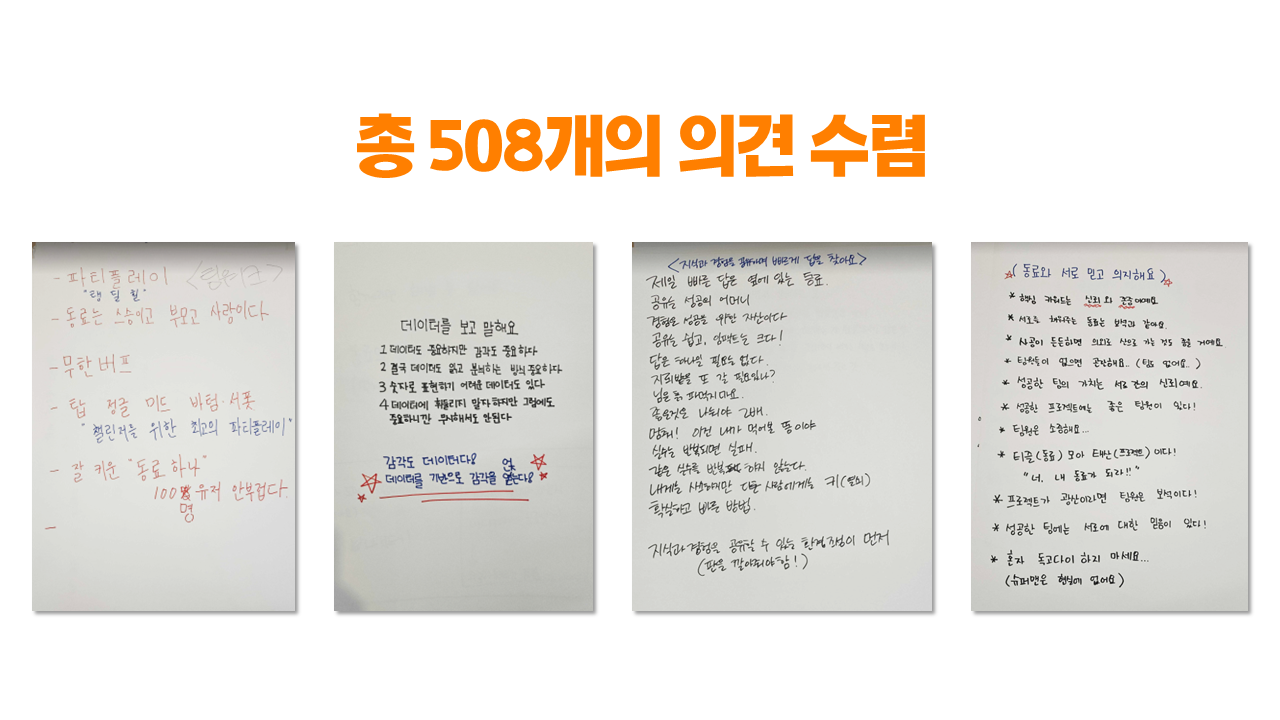 총 508개의 의견 수렴
<팀워크>
- 파티플레이
"탱 딜 힐"
- 동료는 스승이고 부모고 사랑이다
- 무한버프
- 탑 정글 미드 바텀·서폿
"챌린저를 위한 최고의 파티플레이"
- 잘 키운 "동료 하나"
100명 유저 안부럽다.
-
데이터를 보고 말해요
1 데이터도 중요하지만 감각도 중요하다
2 결국 데이터도 읽고 분석하는 방식 중요하다
3 숫자로 표현하기 어려운 데이터도 있다
4 데이터에 휘둘리지 말자 하지만 그럼에도
중요하니깐 무시해서도 안된다
감각도 데이터다?
데이터를 기반으로 감각을 얹는다?
<지식과 경험을 공유하며 빠르게 답을 찾아요>
제일 빠른 답은 옆에 있는 동료.
공유는 성공의 어머니
경험은 성공을 위한 자산이다
공유는 쉽고, 임팩트는 크다!
답은 하나일 필요는 없다.
지뢰밭을 또 갈 필요있나?
님은 파먹지마요.
좋은것은 나눠야 2배.
멈춰! 이건 내가 먹어본 똥이야
실수는 반복되면 실패.
같은 실수를 반복하지 않는다.
내게는 사소하지만 다른 사람에게는 키(열쇠)
확실하고 빠른 방법.
지식과 경험을 공유할 수 있는 환경조성이 먼저
(판을 깔아줘야 함!)
(동료와 서로 믿고 의지해요)
* 핵심 키워드는 신뢰와 존중이에요
* 서로를 채워주는 동료는 보석과 같아요.
* 사공이 든든하면 의외로 산으로 가는 것도 좋을 거예요.
* 팀원들이 없으면 곤란해요.. (팀도 없어요..)
* 성공한 팀의 가치는 서로 간의 신뢰예요.
* 성공한 프로젝트에는 좋은 팀원이 있다!
* 팀원은 소중해요...
* 티끌(동료) 모아 태산(프로젝트)이다!
"너, 내 동료가 되라!!"
* 프로젝트가 광산이라면 팀원은 보석이다!
* 성공한 팀에는 서로에 대한 믿음이 있다!
* 혼자 독고다이 하지 마세요...
(슈퍼맨은 현실에 없어요)